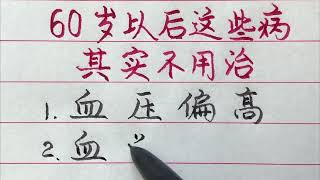 60岁以后这些病
其实不用治
1. 血压偏高
2. 血